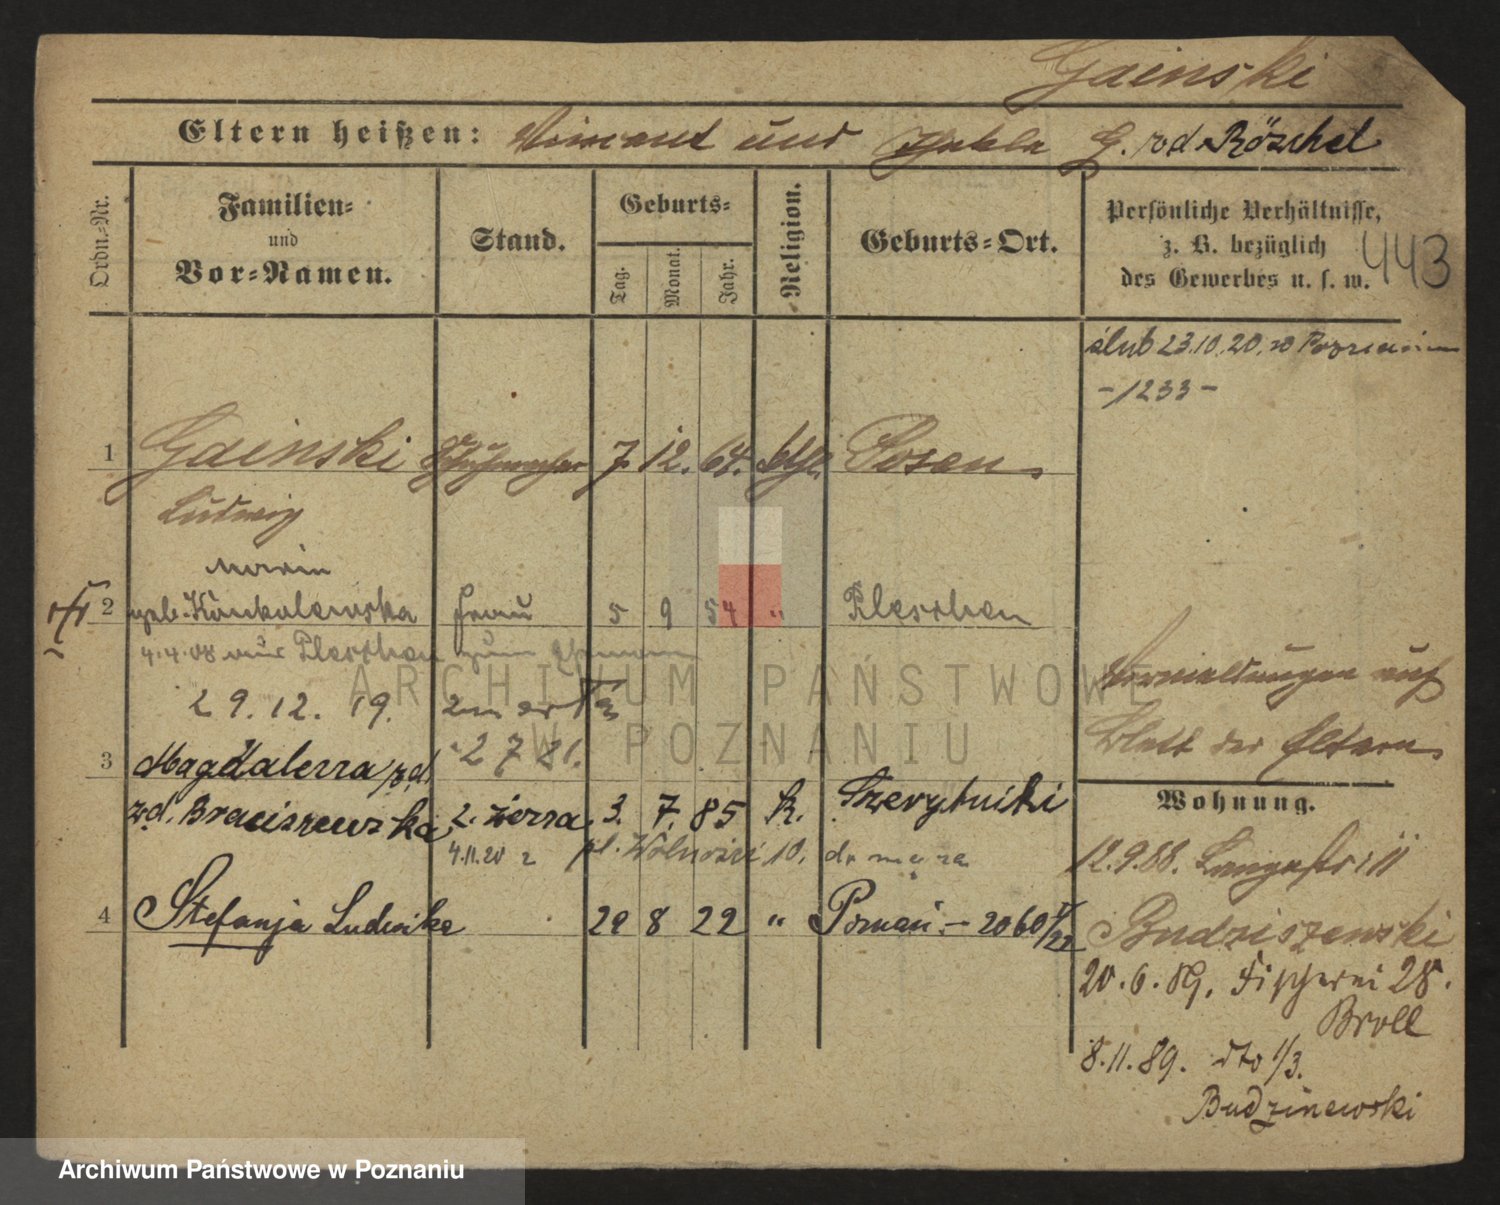 Gainski
Eltern heißen: Vincent und Thekla G. zd Röschel
Ordn.-Nr.
Familien-
und
Vor-Namen.
Stand.
Geburts-
Tag.
Monat.
Jahr.
Religion.
Geburts-Ort.
Persönliche Verhältnisse,
z. B. bezüglich
des Gewerbes u. s. w.
443
ślub 23.10.20. w Poznaniu
-1233-
1 Gainski Schuhmacher 7. 12. 64. kth. Posen
Ludwig
Maria
2 geb. Konkolewska Frau 5 9 54 " Pleschen
4.4.08 aus Pleschen zum Ehemann
29.12.19.
2 7 21.
3 Magdalena
zd. Braciszewska 2. żona 3. 7. 85 k. Szczytniki
4.11.20 z pl. Wolności 10. do męża
4 Stefanja Ludwika 29 8 22 " Poznań - 2060/22
Vermeldungen auf
Blatt der Eltern
Wohnung.
12.9.88. Langestr: 11
Budziszewski
20.6.89. Fischerei 28.
Broll
8.11.89. dto 1/3.
Budzinewski
ARCHIWUM PAŃSTWOWE
W POZNANIU
Archiwum Państwowe w Poznaniu